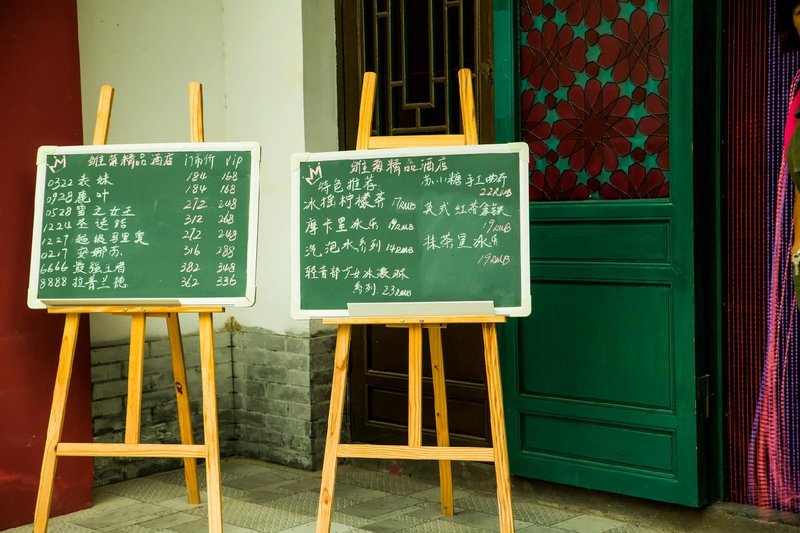 精品酒店 门市价 vip
0322 表妹 184 168
0928 鹿叶 184 168
0528 雪之女王 272 248
1224 圣诞 312 268
1227 超级马里奥 272 248
0217 安娜苏 316 288
6666 最强王者 382 348
8888 拉普兰德 362 336
精品酒店
特色推荐:
冰摇柠檬茶 17RMB
摩卡星冰乐 19RMB
汽泡水系列 14RMB
轻音部少女冰淇淋
系列 23RMB
苏小糖手工曲奇
22RMB
英式红茶拿铁
19RMB
抹茶星冰乐
19RMB